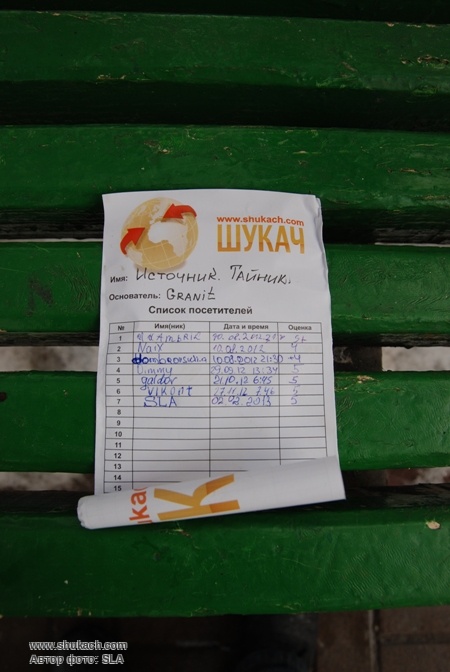 www.shukach.com
ШУКАЧ
Имя: Источник. Тайник.
Основатель: GRANiT
Список посетителей
№ Имя(ник) Дата и время Оценка
1 5+
2 Naix 10.08.2012 4
3 10.08.2012 21:30 4
4 Dimmy 29.09.12 13:34 5
5 galdor 21.10.12 6:45 5
6 VIKONT 27.11.12 7:46 5
7 SLA 02.02.2013 5
8
9
10
11
12
13
14
15
www.shukach.com
Автор фото: SLA